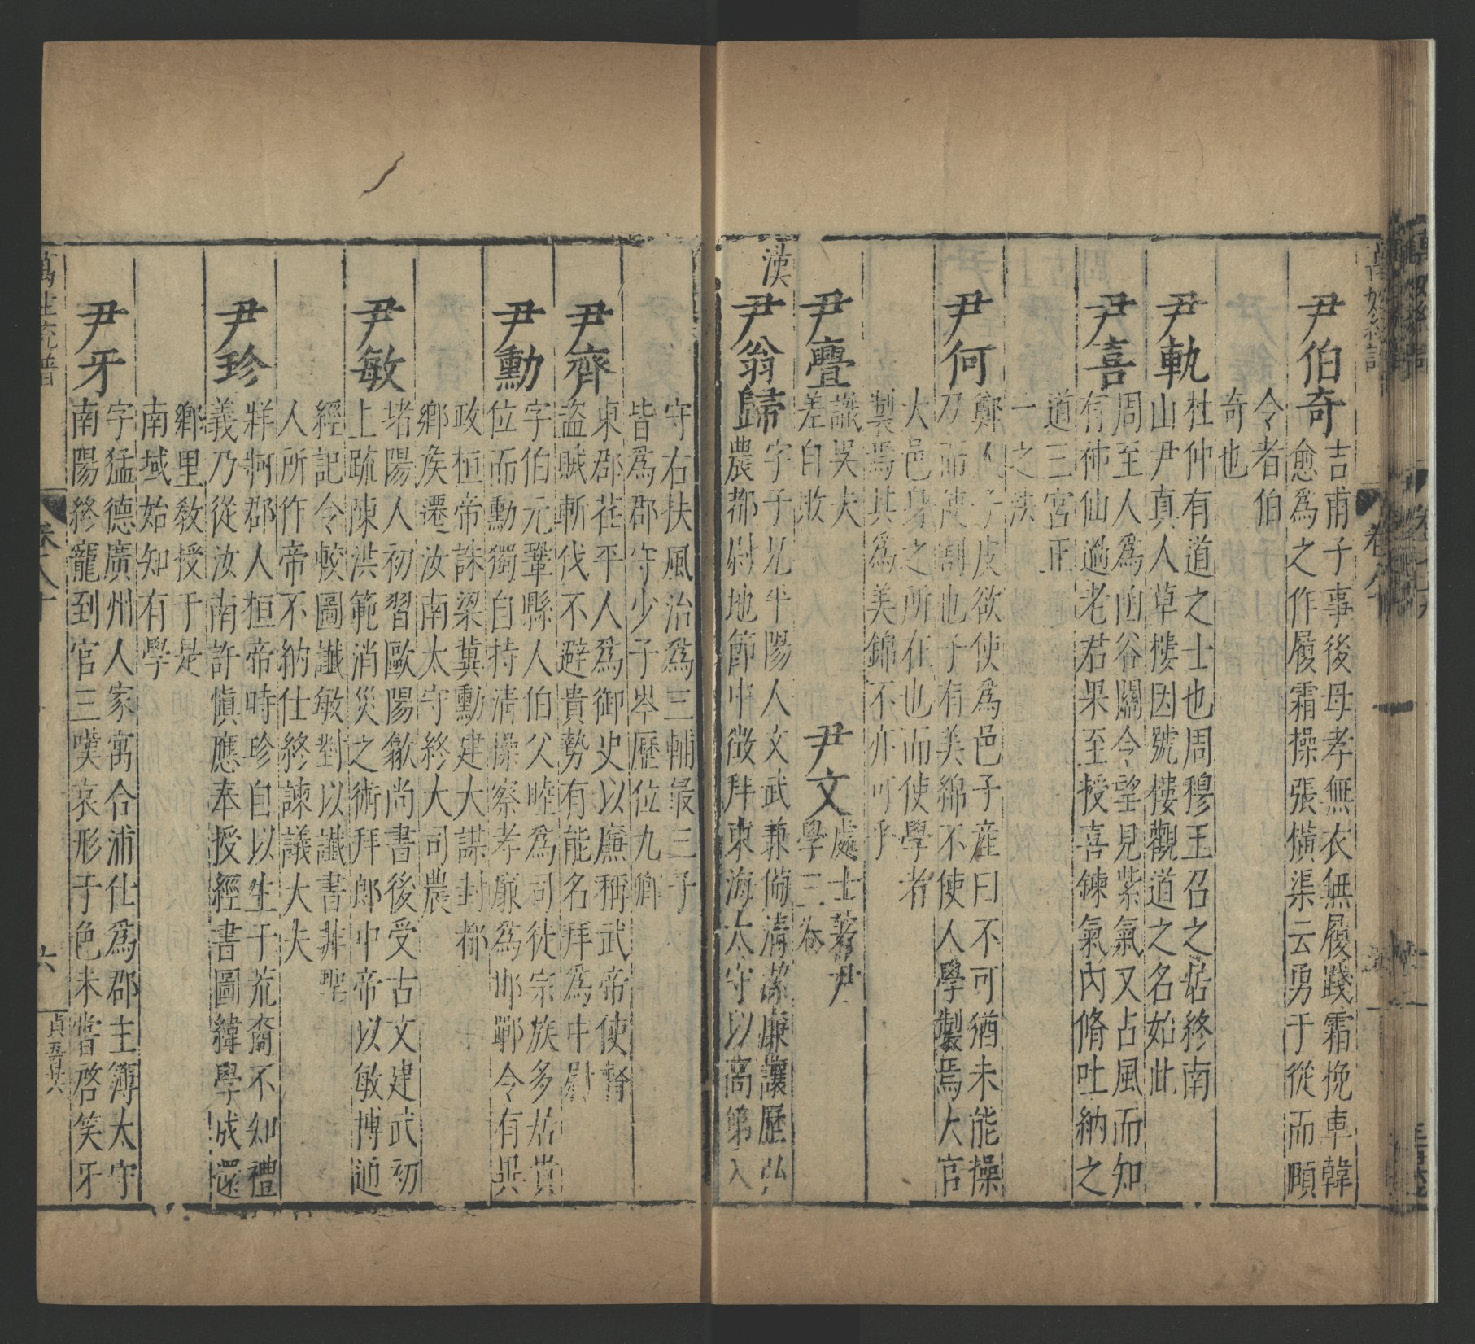 尹伯奇
吉甫子事後母孝無衣無履踐霜挽車韓
愈爲之作履霜操張橫渠云勇于從而順
令者伯
奇也
尹軌
杜仲有道之士也周穆王召之居終南
山尹真人草樓因號樓觀道之名始此
尹喜
周至人爲函谷關令望見紫氣又占風而知
有神仙過老君果至授喜鍊氣內脩吐納之
道三宮正
一之法
尹何
鄭人子皮欲使爲邑子產曰不可猶未能操
刀而使割也子有美綿不使人學製焉大官
大邑身之所在也而使學者
製焉其爲美錦不亦可乎
尹亹
諫吳大
差自敗
尹文
處士著尹
學三卷
漢
尹翁歸
字子兄平陽人文武兼備清潔廉讓歷弘
農都尉地節中徵拜東海太守以高第入
守右扶風治爲三輔最三子
皆爲郡守少子岑歷位九卿
尹齊
東郡茌平人爲御史以廉稱武帝使督
盜賊斬伐不避貴勢有能名拜爲中尉
尹勳
字伯元鞏縣人伯父睦爲司徒宗族多居貴
位而勳獨自持清操察孝廉爲邯鄲令有異
政桓帝誅梁冀勳建大謀封都
鄉侯遷汝南太守終大司農
尹敏
堵陽人初習歐陽歙尚書後受古文建武初
上疏陳洪範消災之術拜郎中帝以敏博通
經記令較圖讖敏對以讖書非聖
人所作帝不納仕終諫議大夫
尹珍
牂牁郡人桓帝時珍自以生于荒裔不知禮
義乃從汝南許慎應奉授經書圖緯學成還
鄉里教授于是
南域始知有學
尹牙
字猛德廣州人家寓合浦仕爲郡主簿太守
南陽終寵到官三嘆哀形于色未嘗啓笑牙
萬姓統譜
卷八十
六